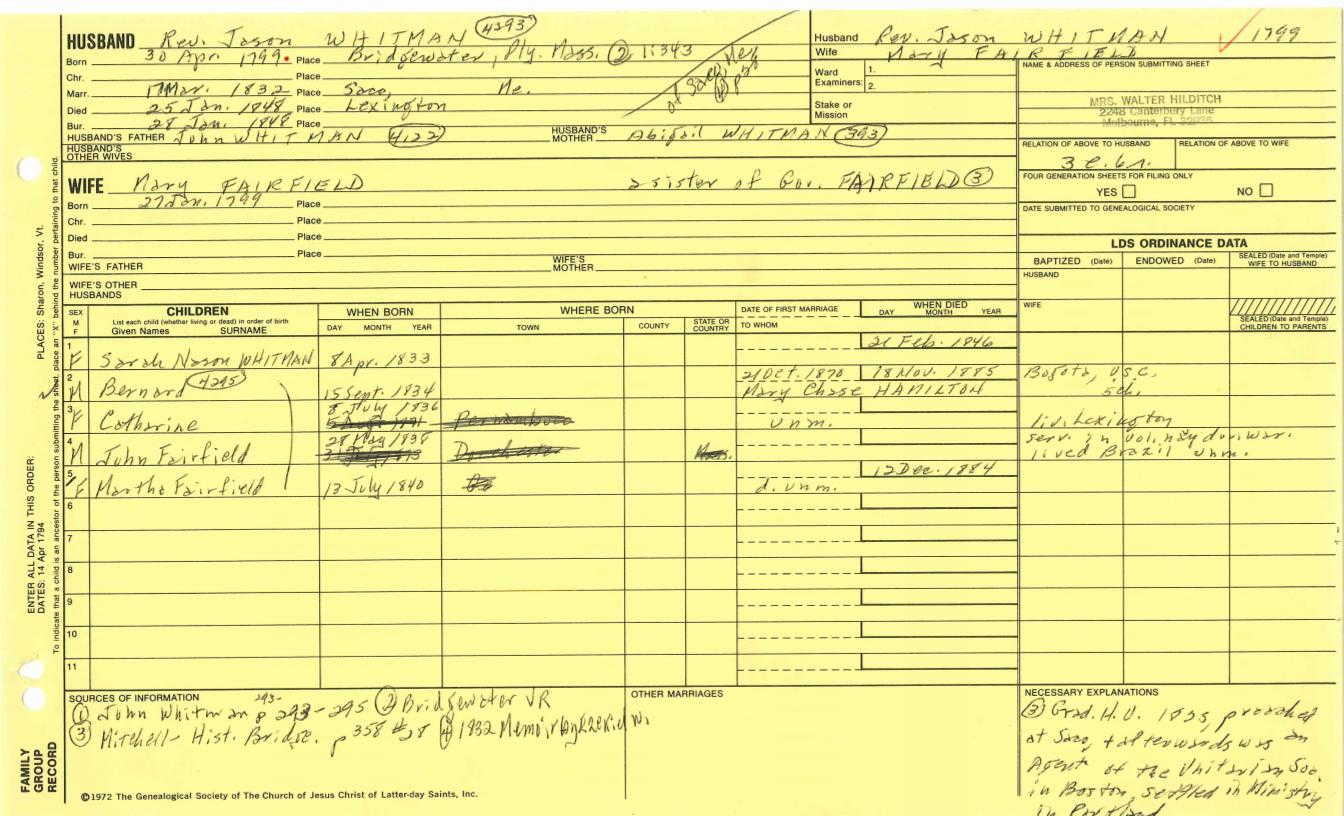 HUSBAND Rev. Jason WHITMAN 4293
Born 30 Apr. 1799. Place Bridgewater, Ply. Mass. ② 1:343
Chr. Place
Marr. Mar. 1832 Place Saco, Me.
Died 25 Jan. 1848 Place Lexington
Bur. 28 Jan. 1848 Place
of Saco, Me
HUSBAND'S FATHER John WHITMAN 4122 HUSBAND'S MOTHER Abigail WHITMAN
HUSBAND'S OTHER WIVES
Husband Rev. Jason WHITMAN 1799
Wife Mary FAIRFIELD
Ward Examiners: 1. 2.
Stake or Mission
NAME & ADDRESS OF PERSON SUBMITTING SHEET
MRS. WALTER HILDITCH
2248 Canterbery Lane
Melbourne, FL 32935
RELATION OF ABOVE TO HUSBAND RELATION OF ABOVE TO WIFE
3 c. 6r.
FOUR GENERATION SHEETS FOR FILING ONLY
YES NO
DATE SUBMITTED TO GENEALOGICAL SOCIETY
WIFE Mary FAIRFIELD a sister of Gov. FAIRFIELD ③
Born 27 Jan. 1799 Place
Chr. Place
Died Place
Bur. Place
WIFE'S FATHER WIFE'S MOTHER
WIFE'S OTHER HUSBANDS
LDS ORDINANCE DATA
BAPTIZED (Date) ENDOWED (Date) SEALED (Date and Temple) WIFE TO HUSBAND
HUSBAND
WIFE
SEALED (Date and Temple) CHILDREN TO PARENTS
SEX M F CHILDREN List each child (whether living or dead) in order of birth Given Names SURNAME
WHEN BORN DAY MONTH YEAR
WHERE BORN TOWN COUNTY STATE OR COUNTRY
DATE OF FIRST MARRIAGE TO WHOM
WHEN DIED DAY MONTH YEAR
1 F Sarah Nason WHITMAN 8 Apr. 1833 21 Feb. 1846
2 M Bernard 4295 15 Sept. 1834 21 Oct. 1870 18 Nov. 1885 Bogota, U.S.C.
Mary Chase HAMILTON 5ch.
3 F Catharine 8 July 1836 Pernambuco unm. liv. Lexington
4 M John Fairfield 28 May 1838 Dorchester Mass. serv. in vol. navy dur. war.
lived Brazil unm.
5 F Martha Fairfield 13 July 1840 d. unm. 12 Dec. 1884
6
7
8
9
10
11
SOURCES OF INFORMATION
① John Whitman p 293-295 ② Bridgewater VR
③ Mitchell - Hist. Bridge. p 358 ④ 1832 Memoir by Ezekiel W.
OTHER MARRIAGES
NECESSARY EXPLANATIONS
③ Grad. H.U. 1825, preached
at Saco, & afterwards was an
Agent of the Unitarian Soc.
in Boston, settled in Ministry
in Portland
©1972 The Genealogical Society of The Church of Jesus Christ of Latter-day Saints, Inc.
FAMILY GROUP RECORD
ENTER ALL DATA IN THIS ORDER:
DATES: 14 Apr 1794
PLACES: Sharon, Windsor, Vt.
To indicate that a child is an ancestor of the person submitting the sheet, place an "X" behind the number pertaining to that child.